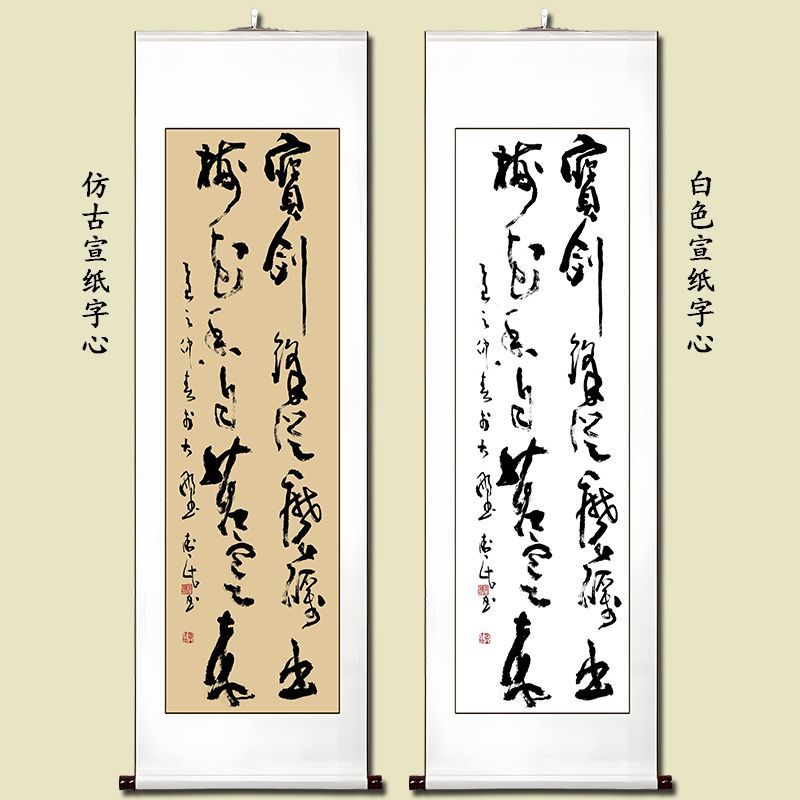 仿古宣纸字心
寶劍鋒從磨礪出
梅花香自苦寒來
寶劍鋒從磨礪出
梅花香自苦寒來
白色宣纸字心